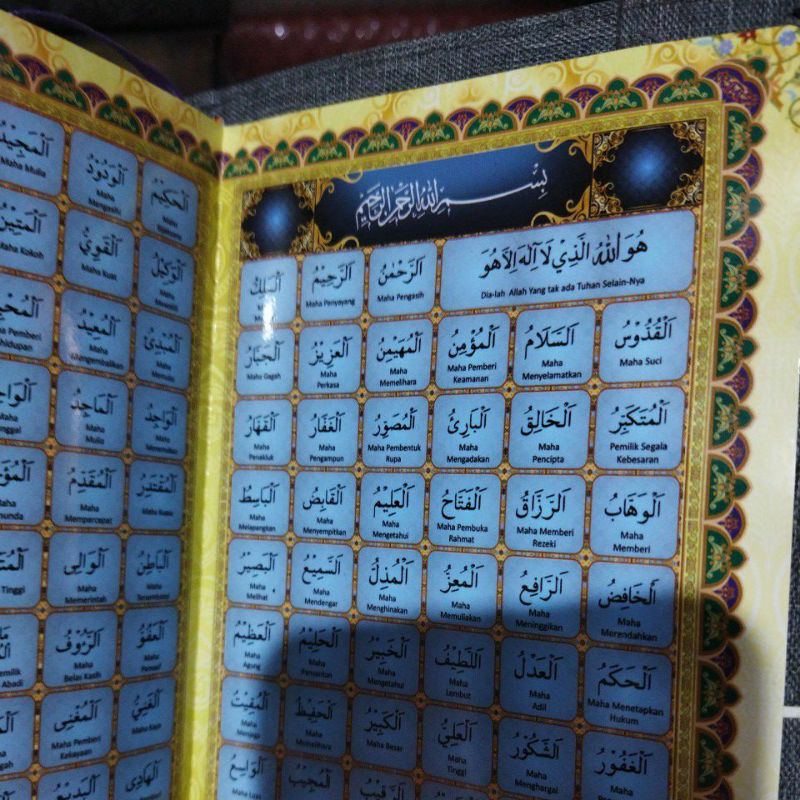 بِسْمِ اللهِ الرَّحْمٰنِ الرَّحِيْمِ
هُوَ اللهُ الَّذِيْ لَا اِلٰهَ اِلَّا هُوَ
Dia-lah Allah Yang tak ada Tuhan Selain-Nya
اَلرَّحْمٰنُ
Maha Pengasih
اَلرَّحِيْمُ
Maha Penyayang
اَلْمَلِكُ
اَلْقُدُّوْسُ
Maha Suci
اَلسَّلَامُ
Maha
Menyelamatkan
اَلْمُؤْمِنُ
Maha Pemberi
Keamanan
اَلْمُهَيْمِنُ
Maha
Memelihara
اَلْعَزِيْزُ
Maha
Perkasa
اَلْجَبَّارُ
Maha Gagah
اَلْمُتَكَبِّرُ
Pemilik Segala
Kebesaran
اَلْخَالِقُ
Maha
Pencipta
اَلْبَارِئُ
Maha
Mengadakan
اَلْمُصَوِّرُ
Maha Pembentuk
Rupa
اَلْغَفَّارُ
Maha
Pengampun
اَلْقَهَّارُ
Maha
Penakluk
اَلْوَهَّابُ
Maha
Memberi
اَلرَّزَّاقُ
Maha Memberi
Rezeki
اَلْفَتَّاحُ
Maha Pembuka
Rahmat
اَلْعَلِيْمُ
Maha
Mengetahui
اَلْقَابِضُ
Maha
Menyempitkan
اَلْبَاسِطُ
Maha
Melapangkan
اَلْخَافِضُ
Maha
Merendahkan
اَلرَّافِعُ
Maha
Meninggikan
اَلْمُعِزُّ
Maha
Memuliakan
اَلْمُذِلُّ
Maha
Menghinakan
اَلسَّمِيْعُ
Maha
Mendengar
اَلْبَصِيْرُ
Maha
Melihat
اَلْحَكَمُ
Maha Menetapkan
Hukum
اَلْعَدْلُ
Maha
Adil
اَللَّطِيْفُ
Maha
Lembut
اَلْخَبِيْرُ
Maha
Mengetahui
اَلْحَلِيْمُ
Maha
Penyantun
اَلْعَظِيْمُ
Maha
Agung
اَلْغَفُوْرُ
Maha
اَلشَّكُوْرُ
Maha
Menghargai
اَلْعَلِيُّ
Maha
Tinggi
اَلْكَبِيْرُ
Maha Besar
اَلْحَفِيْظُ
Maha
Memelihara
اَلْمُقِيْتُ
Maha
Menjaga
اَلرَّقِيْبُ
اَلْمُجِيْبُ
اَلْوَاسِعُ
Maha Luas
اَلْحَكِيْمُ
Maha
اَلْوَدُوْدُ
Maha
Mengasihi
اَلْمَجِيْدُ
Maha Mulia
اَلْوَكِيْلُ
Maha
اَلْقَوِيُّ
Maha Kuat
اَلْمَتِيْنُ
Maha Kokoh
اَلْمُبْدِئُ
Maha
Memulai
اَلْمُعِيْدُ
Maha
Mengembalikan
Maha Pemberi
اَلْوَاجِدُ
Maha
Menemukan
اَلْمَاجِدُ
Maha
Mulia
اَلْمُقْتَدِرُ
Maha Kuasa
اَلْمُقَدِّمُ
Maha
Mempercepat
Maha
اَلْبَاطِنُ
Maha
اَلْوَالِى
Maha
Memerintah
Tinggi
اَلْعَفُوُّ
Maha
Pemaaf
اَلرَّءُوْفُ
Maha
Belas Kasih
Abadi
اَلْغَنِيُّ
Maha Kaya
اَلْمُغْنِى
Maha Pemberi
Kekayaan
اَلْهَادِى
اَلْبَدِيْعُ